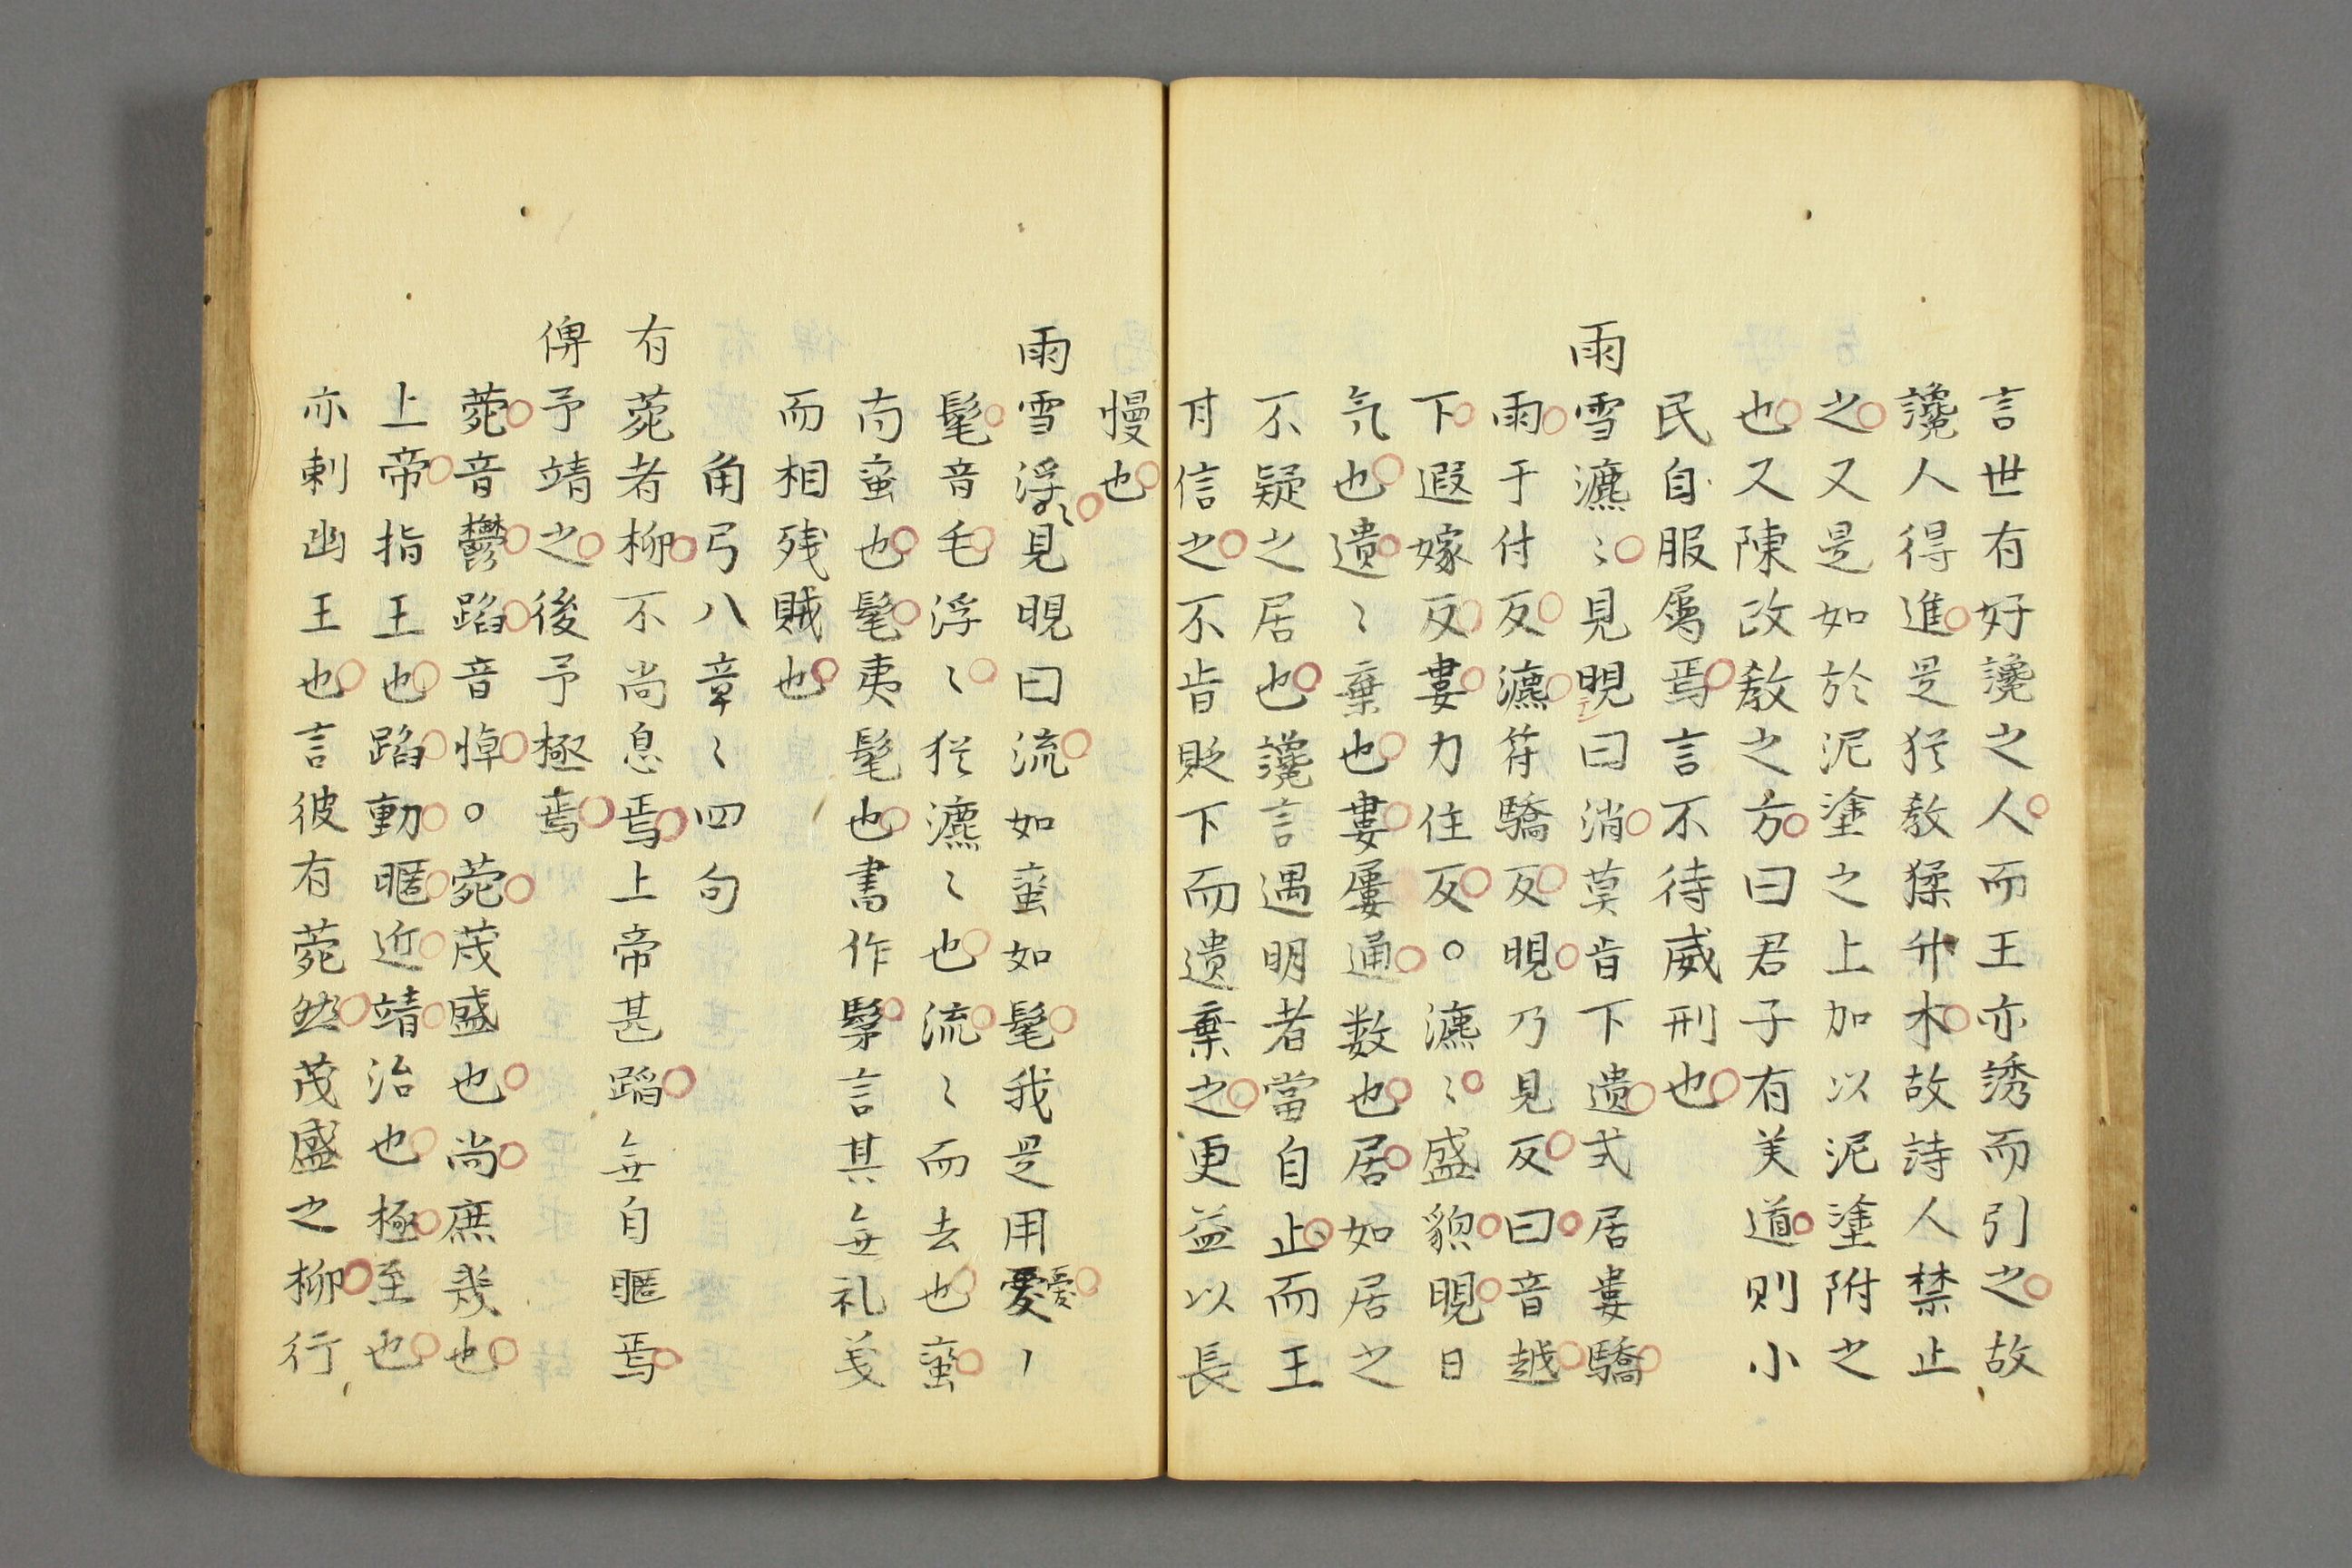 言世有好讒之人而王亦誘而引之故
讒人得進是犹教猱升木故詩人禁止
之又是如於泥塗之上加以泥塗附之
也又陳改教之方曰君子有美道則小
民自服属焉言不待威刑也
雨雪瀌〻見晛曰消莫肯下遺式居婁驕
雨于付反瀌符驕反晛乃見反曰音越
下遐嫁反婁力住反。瀌〻盛貌晛日
気也遺〻棄也婁屢通数也居如居之
不疑之居也讒言遇明者當自止而王
甘信之不肯貶下而遺棄之更益以長
慢也
雨雪浮〻見晛曰流如蛮如髦我是用憂
髦音毛浮〻犹瀌〻也流〻而去也蛮
南蛮也髦夷髦也書作髳言其無礼義
而相残賊也
角弓八章〻四句
有菀者柳不尚息焉上帝甚蹈無自暱焉
俾予靖之後予極焉
菀音鬱蹈音悼。菀茂盛也尚庶幾也
上帝指王也蹈動暱近靖治也極至也
亦刺幽王也言彼有菀然茂盛之柳行